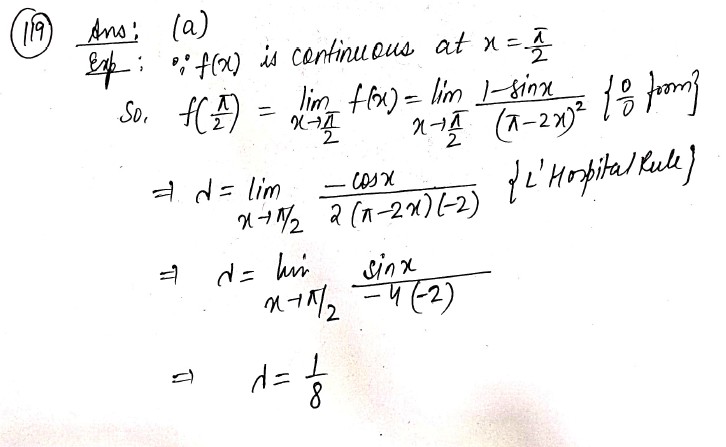 (119) Ans: (a)
Exp: ∵ f(x) is continuous at x = π/2
So, f(π/2) = lim x→π/2 f(x) = lim x→π/2 (1-sinx)/(π-2x)² {0/0 form}
⇒ λ = lim x→π/2 -cosx/(2(π-2x)(-2)) {L'Hospital Rule}
⇒ λ = lim x→π/2 sinx/(-4(-2))
⇒ λ = 1/8